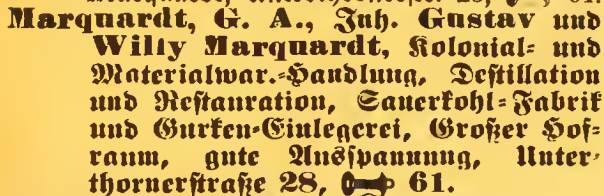 Marquardt, G. A., Inh. Gustav und
Willy Marquardt, Kolonial= und
Materialwar.=Handlung, Destillation
und Restauration, Sauerkohl=Fabrik
und Gurken=Einlegerei, Großer Hof=
raum, gute Ausspannung, Unter=
thornerstraße 28, 61.